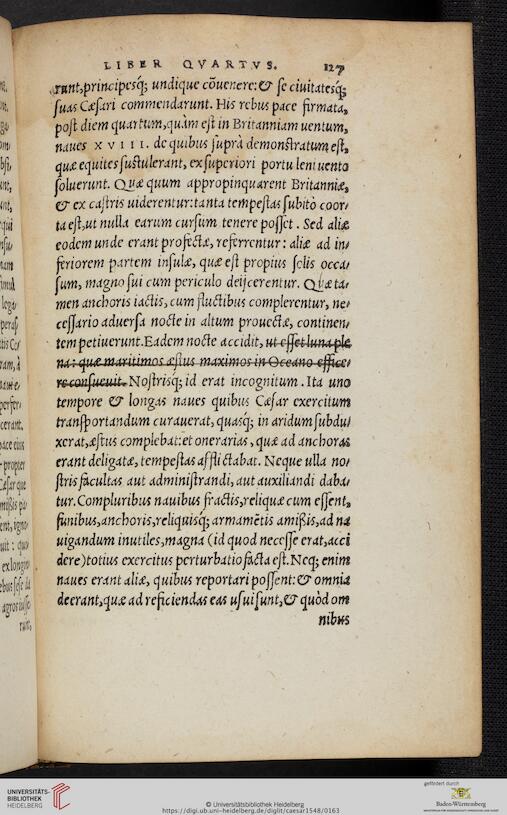 LIBER QVARTVS. 127
runt, principesq́; undique cõuenere: & se ciuitatesq́;
suas Cæsari commendarunt. His rebus pace firmata,
post diem quartum, quàm est in Britanniam uentum,
naues XVIII. de quibus suprà demonstratum est,
quæ equites sustulerant, ex superiori portu leni uento
soluerunt. Quæ quum appropinquarent Britanniæ,
& ex castris uiderentur: tanta tempestas subitò coor/
ta est, ut nulla earum cursum tenere posset. Sed aliæ
eodem unde erant profectæ, referrentur: aliæ ad in/
feriorem partem insulæ, quæ est propius solis occa/
sum, magno sui cum periculo deijcerentur. Quæ ta/
men anchoris iactis, cum fluctibus complerentur, ne/
cessario aduersa nocte in altum prouectæ, continen/
tem petiuerunt. Eadem nocte accidit, ut esset luna ple
na: quæ maritimos æstus maximos in Oceano effice/
re consueuit. Nostrisq́; id erat incognitum. Ita uno
tempore & longas naues quibus Cæsar exercitum
transportandum curauerat, quasq́; in aridum subdu/
xerat, æstus complebat: et onerarias, quæ ad anchoras
erant deligatæ, tempestas afflictabat. Neque ulla no/
stris facultas aut administrandi, aut auxiliandi daba/
tur. Compluribus nauibus fractis, reliquæ cum essent,
funibus, anchoris, reliquisq́; armamẽtis amißis, ad na
uigandum inutiles, magna (id quod necesse erat, acci
dere) totius exercitus perturbatio facta est. Neq; enim
naues erant aliæ, quibus reportari possent: & omnia
deerant, quæ ad reficiendas eas usui sunt, & quòd om
nibus
UNIVERSITÄTS-
BIBLIOTHEK
HEIDELBERG
© Universitätsbibliothek Heidelberg
https://digi.ub.uni-heidelberg.de/diglit/caesar1548/0163
gefördert durch
Baden-Württemberg